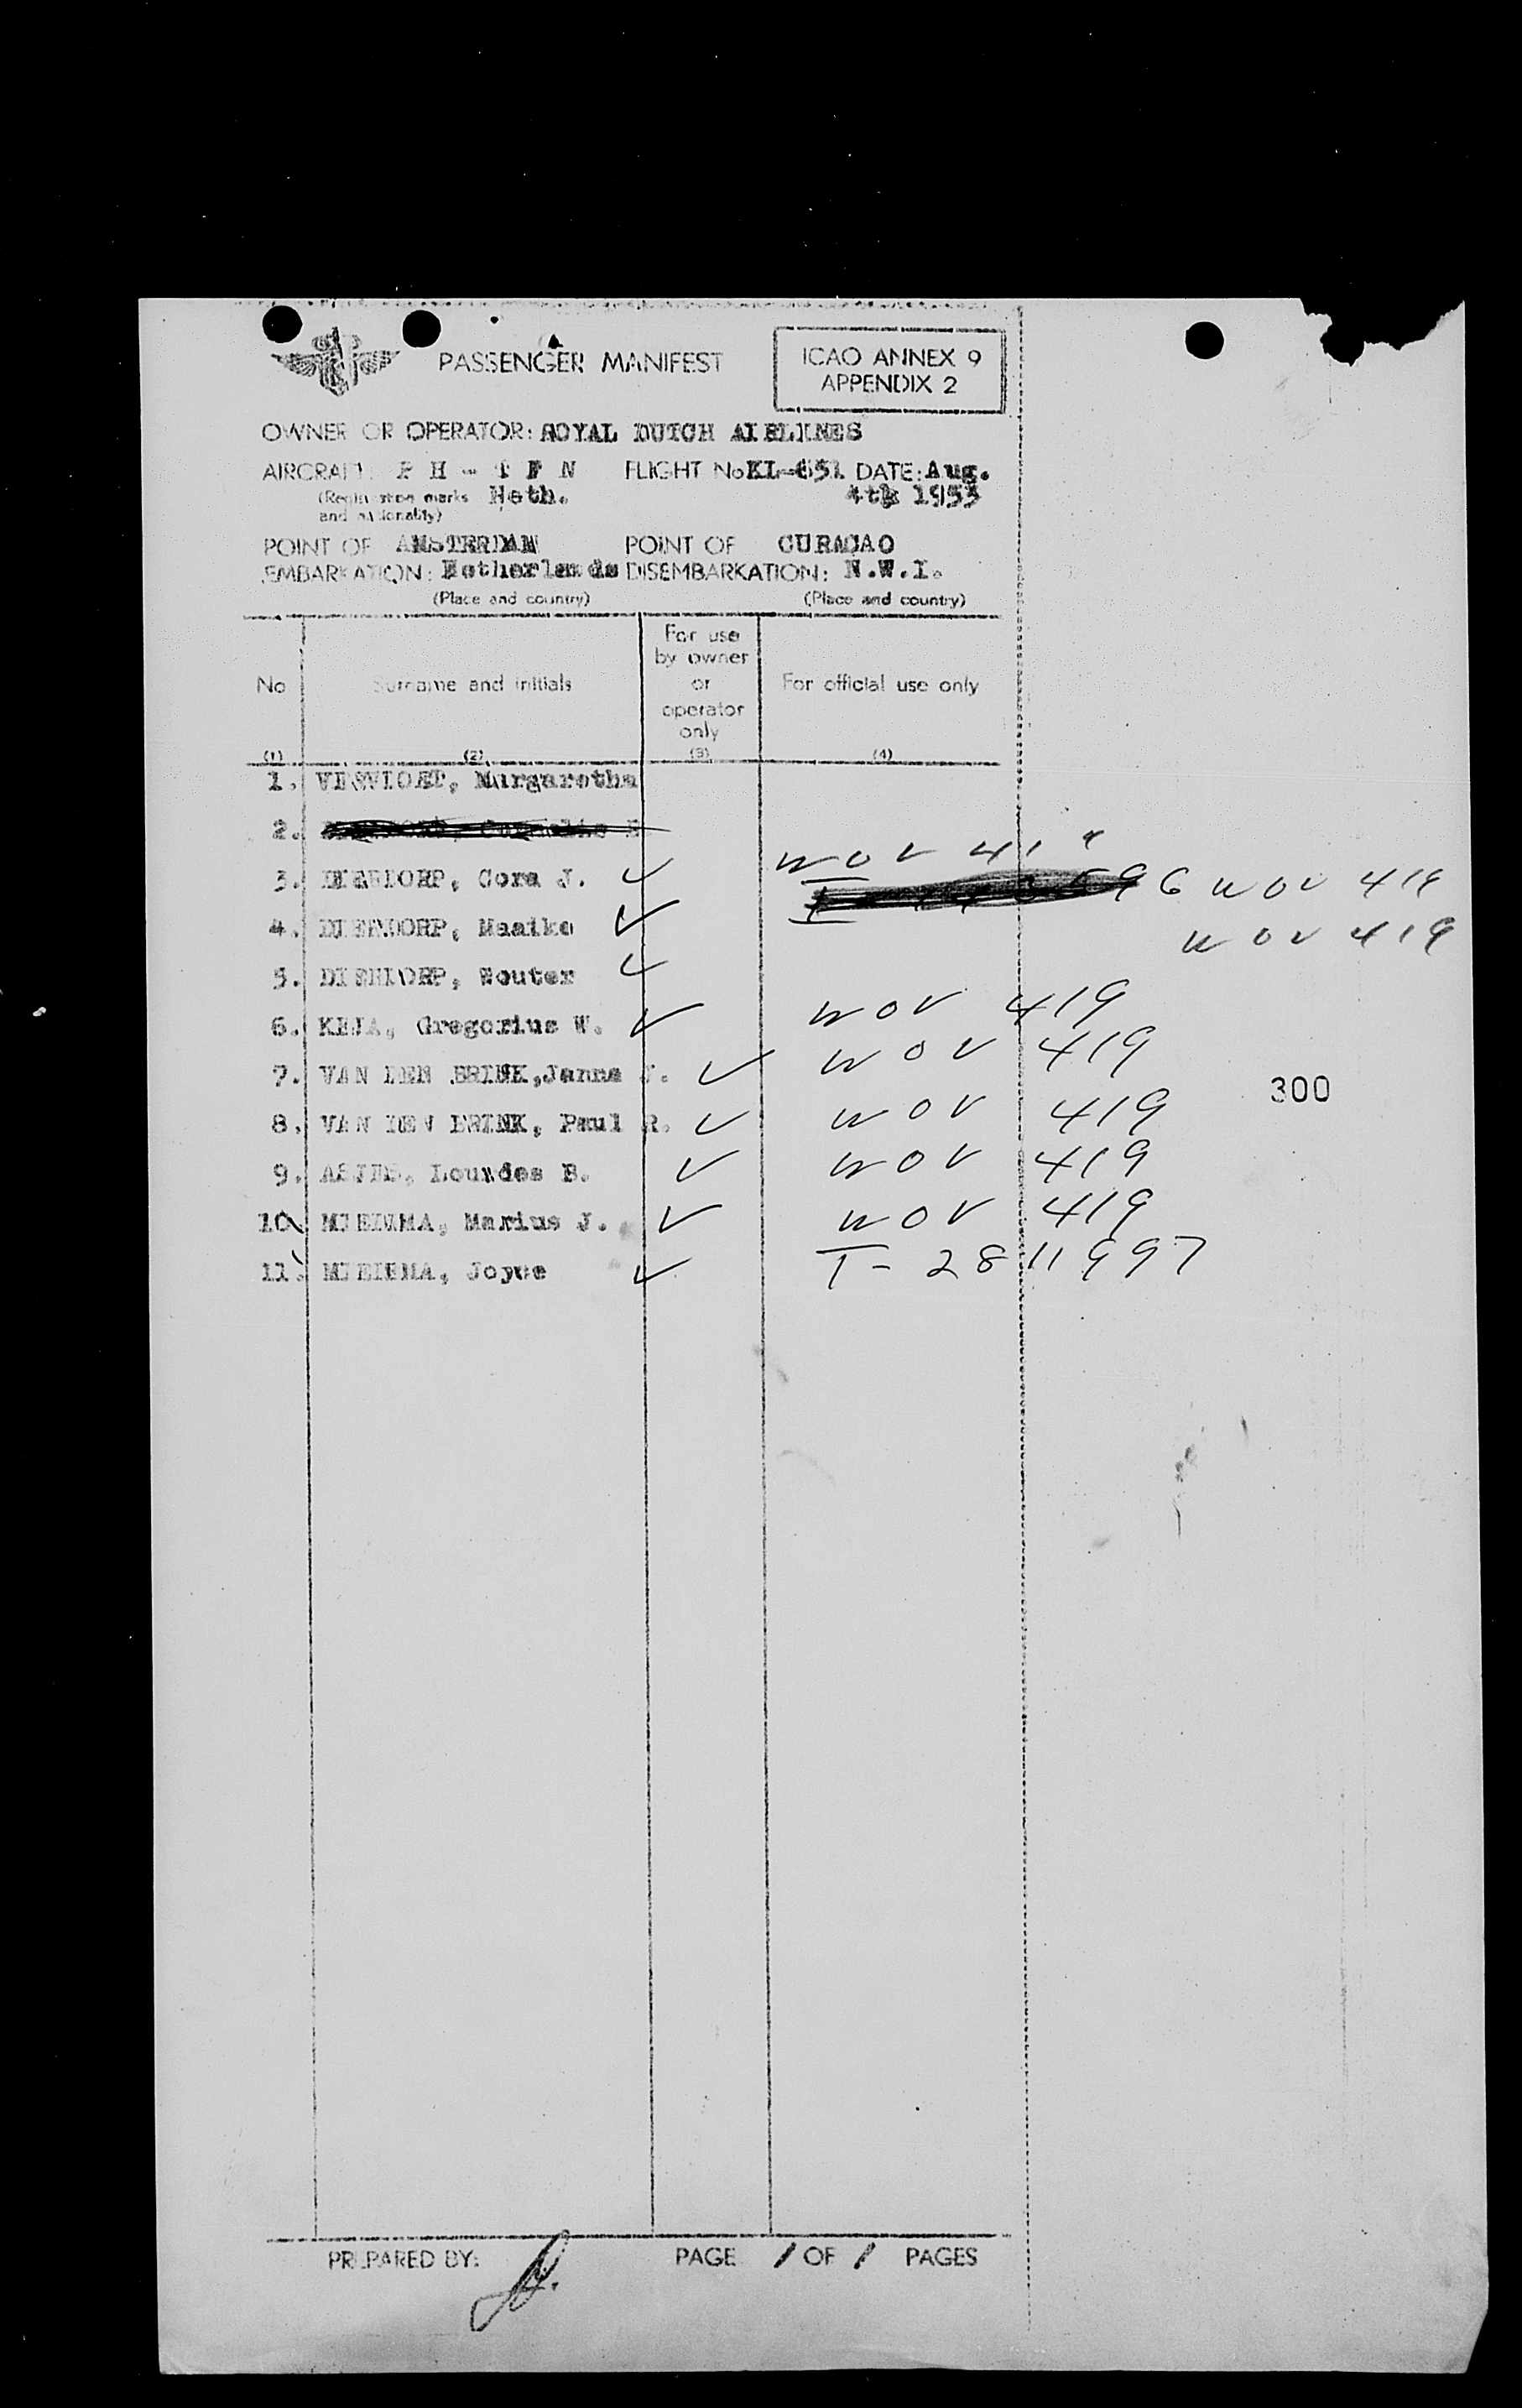 PASSENGER MANIFEST
ICAO ANNEX 9
APPENDIX 2
OWNER OR OPERATOR: ROYAL DUTCH AIRLINES
AIRCRAFT: P H - T F N FLIGHT No KL-651 DATE: Aug.
(Registration marks Neth. 4th 1953
and nationality)
POINT OF AMSTERDAM POINT OF CURACAO
EMBARKATION: Netherlands DISEMBARKATION: N.W.I.
(Place and country) (Place and country)
No Surname and initials For use by owner or operator only For official use only
(1) (2) (3) (4)
1. Margaretha
2.
wov 41
3. DIERDORP, Cora J. ✓
96 wov 419
4. DIERDORP, Maaike ✓
wov 419
5. DIERDORP, Wouter ✓
6. KEJA, Gregorius W. ✓ wov 419
7. VAN DEN BRINK, Janna J. ✓ wov 419
8. VAN DEN BRINK, Paul R. ✓ wov 419
300
9. ASJES, Lourdes B. ✓ wov 419
10. Marius J. ✓ wov 419
11. Joyce ✓ T-2811997
PREPARED BY: PAGE 1 OF 1 PAGES